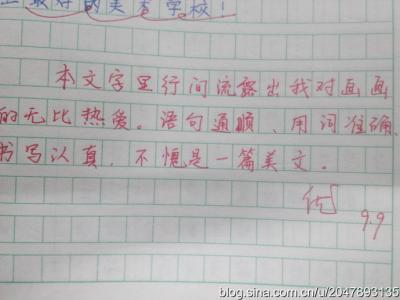 上最好的美术学校！
本文字里行间流露出我对画画
的无比热爱。语句通顺、用词准确、
书写认真，不愧是一篇美文。
优
9.9
blog.sina.com.cn/u/2047893135